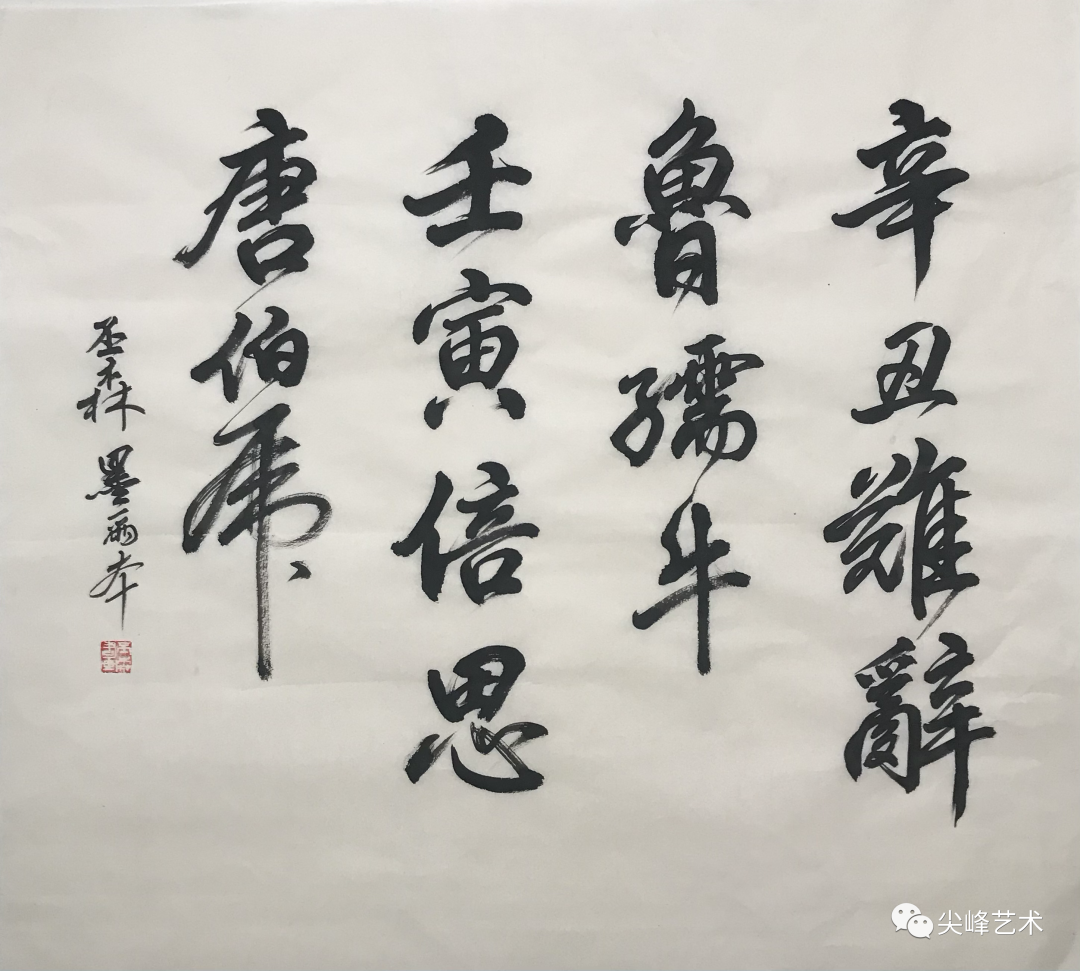 辛丑難辭
魯孺牛
壬寅倍思
唐伯虎
墨雨本
尖峰艺术